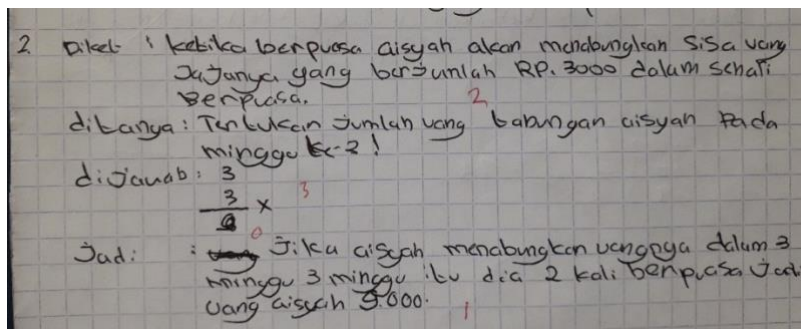 2. Diket : ketika berpuasa aisyah akan menabungkan sisa uang
Jajanya yang berjumlah RP. 3000 dalam sehari
Berpuasa.
2
ditanya : Tentukan jumlah uang tabungan aisyah Pada
minggu ke-2!
dijawab : 3
3 x 3
9
0
Jad : Jika aisyah menabungkan uangnya dalam 3
minggu 3 minggu itu dia 2 kali berpuasa Jadi
uang aisyah 9.000.
1